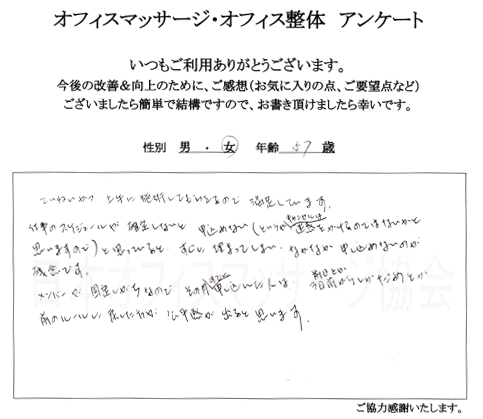 オフィスマッサージ・オフィス整体 アンケート
いつもご利用ありがとうございます。
今後の改善&向上のために、ご感想(お気に入りの点、ご要望点など)
ございましたら簡単で結構ですので、お書き頂けましたら幸いです。
性別 男 ・ 女 年齢 57 歳
ていねいかつ 上手に施術してもらえるので 満足しています。
仕事のスケジュールが 確定しないと 申込めない(というか キャンセルは 迷惑をかけるのではないかと
思いますので)と思っていると、すぐに 埋まってしまい、なかなか 申し込めないのが
残念です。
メンバーが 固定しがちなので その月 申し込んだ人は 前日とか 3日前からしかだめとか
前のルールに 戻した方が 公平感が 出ると 思います。
日本オフィスマッサージ協会
ご協力感謝いたします。